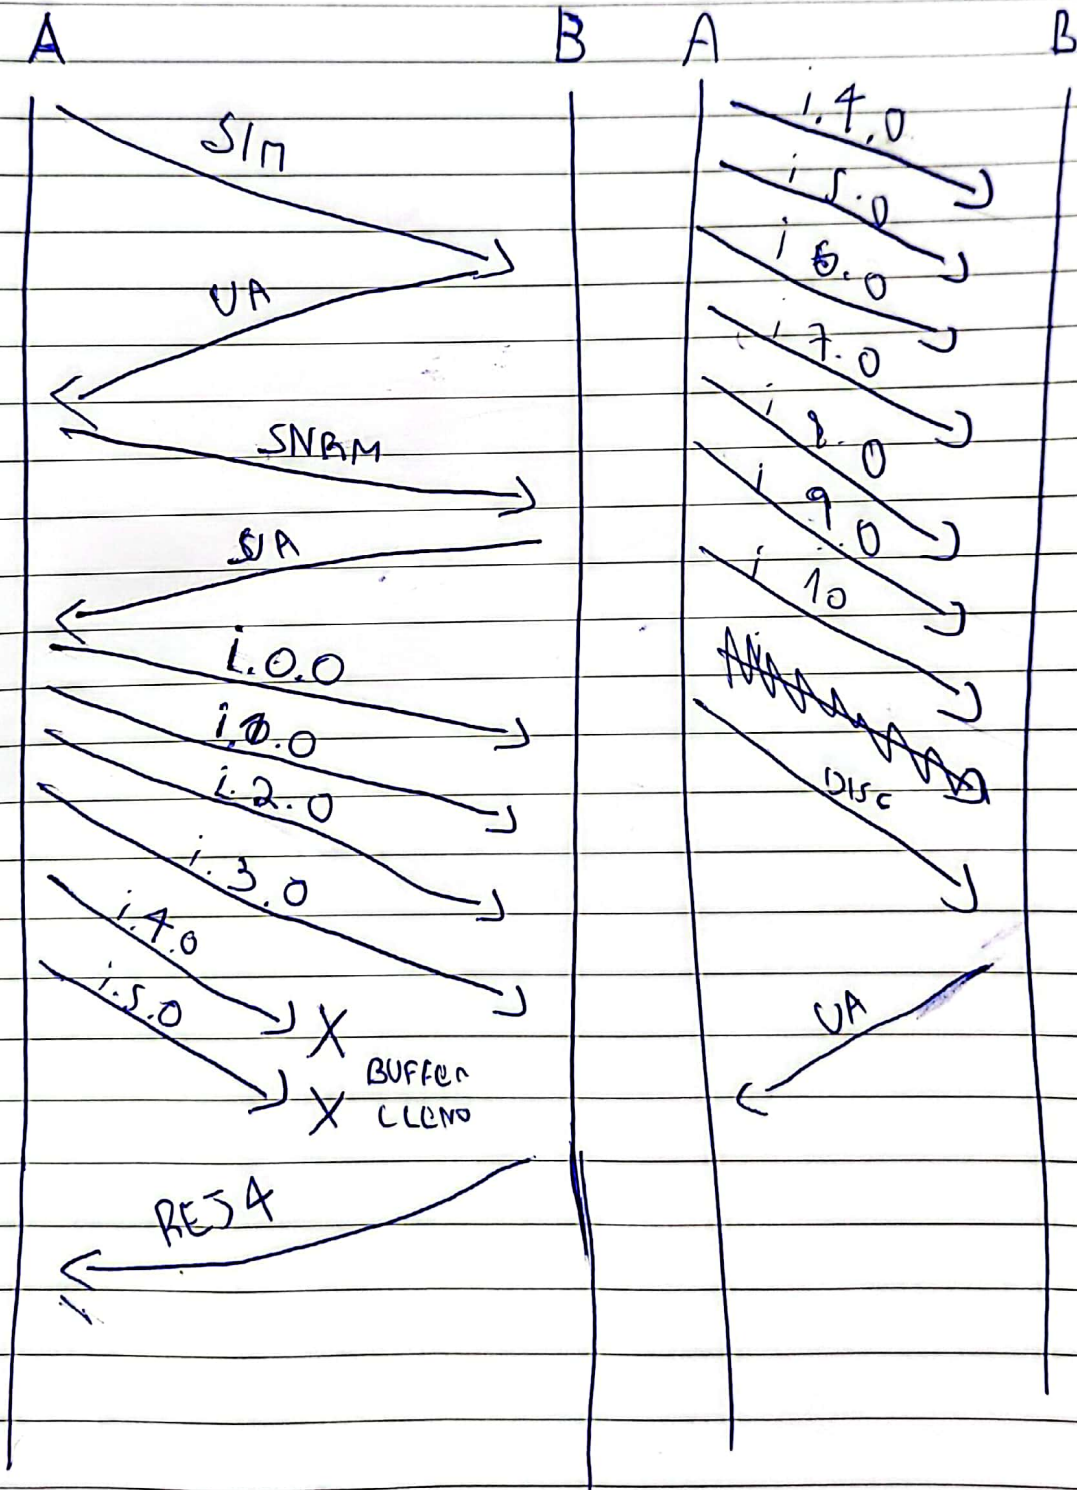 A B
SIM
UA
SNRM
UA
i.0.0
i.1.0
i.2.0
i.3.0
i.4.0
i.5.0
X BUFFER
X LLENO
REJ 4
A B
i.4.0
i 5.0
i 6.0
i 7.0
i 8.0
i 9.0
i 10
DISC
UA